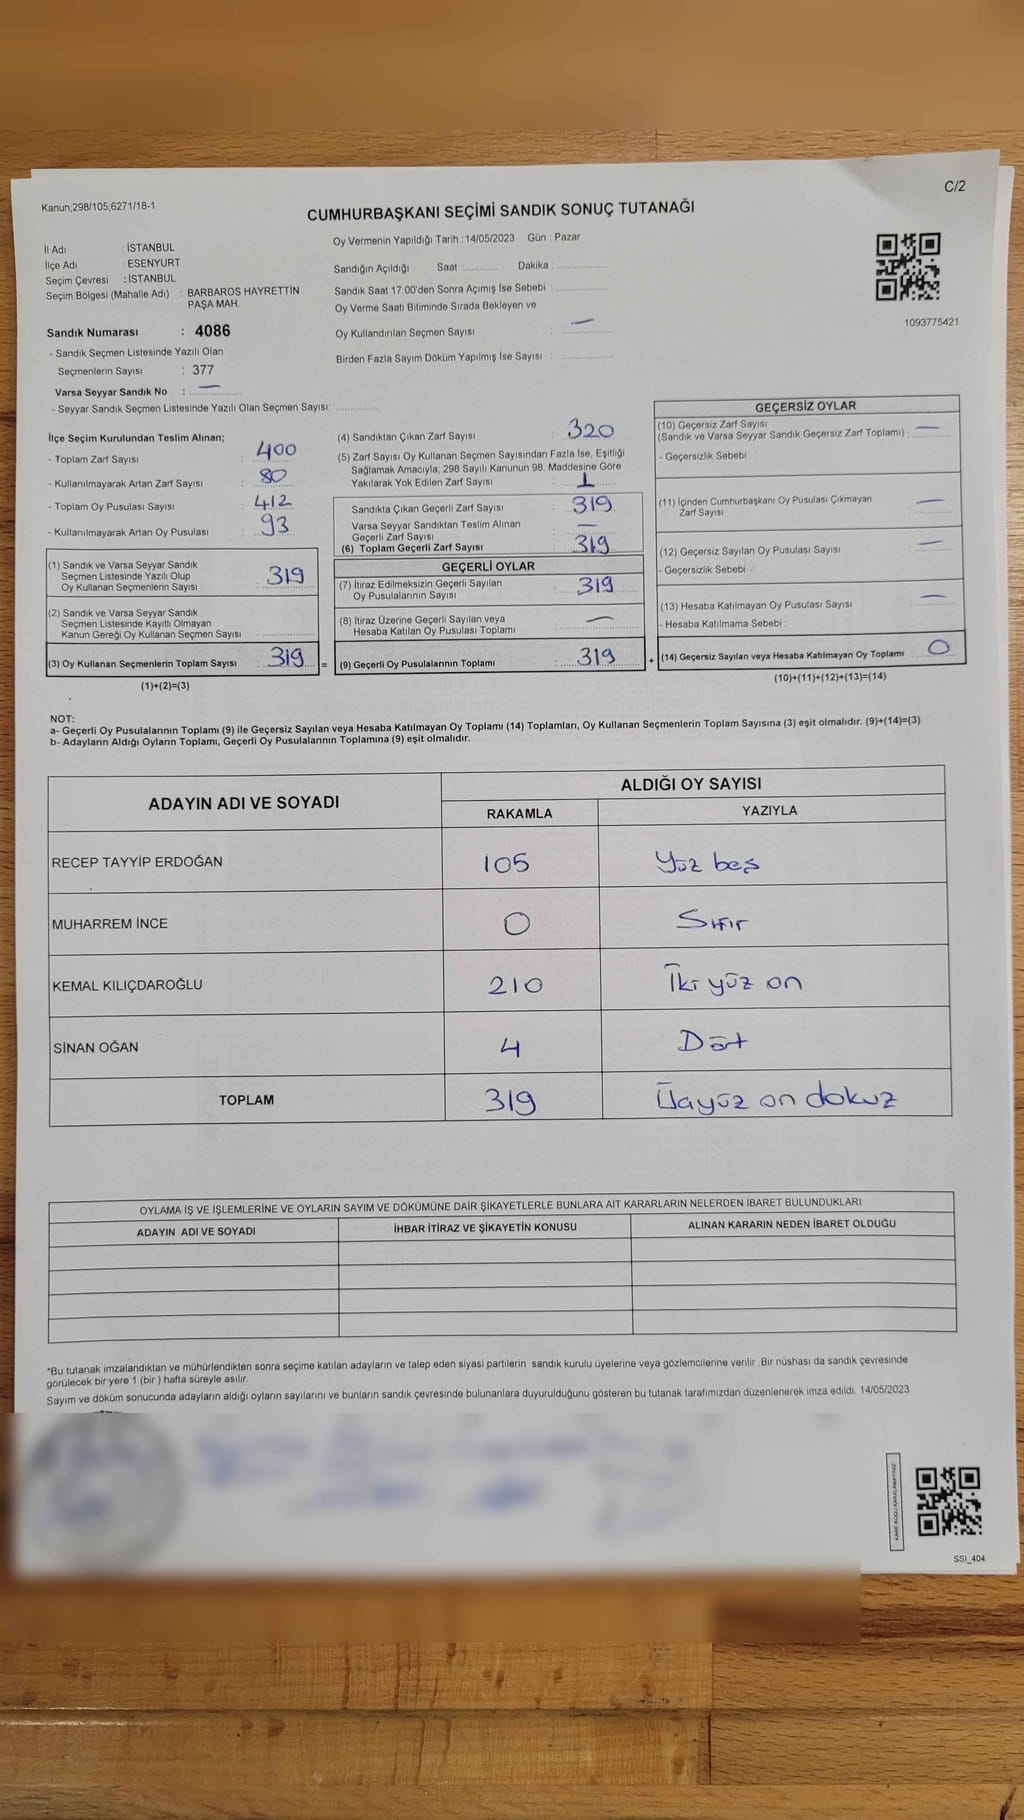 C/2
Kanun;298/105;6271/18-1
CUMHURBAŞKANI SEÇİMİ SANDIK SONUÇ TUTANAĞI
İl Adı : İSTANBUL
İlçe Adı : ESENYURT
Seçim Çevresi : İSTANBUL
Seçim Bölgesi (Mahalle Adı) : BARBAROS HAYRETTİN
PAŞA MAH.
Sandık Numarası : 4086
- Sandık Seçmen Listesinde Yazılı Olan
Seçmenlerin Sayısı : 377
Varsa Seyyar Sandık No : —
- Seyyar Sandık Seçmen Listesinde Yazılı Olan Seçmen Sayısı:
Oy Vermenin Yapıldığı Tarih : 14/05/2023 Gün : Pazar
Sandığın Açıldığı Saat : Dakika :
Sandık Saat 17.00'den Sonra Açımış İse Sebebi :
Oy Verme Saati Bitiminde Sırada Bekleyen ve
Oy Kullandırılan Seçmen Sayısı : —
Birden Fazla Sayım Döküm Yapılmış İse Sayısı :
1093775421
İlçe Seçim Kurulundan Teslim Alınan;
- Toplam Zarf Sayısı : 400
- Kullanılmayarak Artan Zarf Sayısı : 80
- Toplam Oy Pusulası Sayısı : 412
- Kullanılmayarak Artan Oy Pusulası : 93
(1) Sandık ve Varsa Seyyar Sandık
Seçmen Listesinde Yazılı Olup
Oy Kullanan Seçmenlerin Sayısı : 319
(2) Sandık ve Varsa Seyyar Sandık
Seçmen Listesinde Kayıtlı Olmayan
Kanun Gereği Oy Kullanan Seçmen Sayısı :
(3) Oy Kullanan Seçmenlerin Toplam Sayısı : 319 =
(1)+(2)=(3)
(4) Sandıktan Çıkan Zarf Sayısı : 320
(5) Zarf Sayısı Oy Kullanan Seçmen Sayısından Fazla İse, Eşitliği
Sağlamak Amacıyla; 298 Sayılı Kanunun 98. Maddesine Göre
Yakılarak Yok Edilen Zarf Sayısı : 1
Sandıkta Çıkan Geçerli Zarf Sayısı : 319
Varsa Seyyar Sandıktan Teslim Alınan
Geçerli Zarf Sayısı : —
(6) Toplam Geçerli Zarf Sayısı : 319
GEÇERLİ OYLAR
(7) İtiraz Edilmeksizin Geçerli Sayılan
Oy Pusulalarının Sayısı : 319
(8) İtiraz Üzerine Geçerli Sayılan veya
Hesaba Katılan Oy Pusulası Toplamı : —
(9) Geçerli Oy Pusulalarının Toplamı : 319 +
GEÇERSİZ OYLAR
(10) Geçersiz Zarf Sayısı
(Sandık ve Varsa Seyyar Sandık Geçersiz Zarf Toplamı) : —
- Geçersizlik Sebebi :
(11) İçinden Cumhurbaşkanı Oy Pusulası Çıkmayan
Zarf Sayısı : —
(12) Geçersiz Sayılan Oy Pusulası Sayısı : —
- Geçersizlik Sebebi :
(13) Hesaba Katılmayan Oy Pusulası Sayısı : —
- Hesaba Katılmama Sebebi :
(14) Geçersiz Sayılan veya Hesaba Katılmayan Oy Toplamı : 0
(10)+(11)+(12)+(13)=(14)
NOT:
a- Geçerli Oy Pusulalarının Toplamı (9) ile Geçersiz Sayılan veya Hesaba Katılmayan Oy Toplamı (14) Toplamları, Oy Kullanan Seçmenlerin Toplam Sayısına (3) eşit olmalıdır. (9)+(14)=(3)
b- Adayların Aldığı Oyların Toplamı, Geçerli Oy Pusulalarının Toplamına (9) eşit olmalıdır.
ADAYIN ADI VE SOYADI ALDIĞI OY SAYISI
RAKAMLA YAZIYLA
RECEP TAYYİP ERDOĞAN 105 Yüz beş
MUHARREM İNCE 0 Sıfır
KEMAL KILIÇDAROĞLU 210 İki yüz on
SİNAN OĞAN 4 Dört
TOPLAM 319 Üçyüz on dokuz
OYLAMA İŞ VE İŞLEMLERİNE VE OYLARIN SAYIM VE DÖKÜMÜNE DAİR ŞİKAYETLERLE BUNLARA AİT KARARLARIN NELERDEN İBARET BULUNDUKLARI
ADAYIN ADI VE SOYADI İHBAR İTİRAZ VE ŞİKAYETİN KONUSU ALINAN KARARIN NEDEN İBARET OLDUĞU
*Bu tutanak imzalandıktan ve mühürlendikten sonra seçime katılan adayların ve talep eden siyasi partilerin sandık kurulu üyelerine veya gözlemcilerine verilir. Bir nüshası da sandık çevresinde
görülecek bir yere 1 (bir ) hafta süreyle asılır.
Sayım ve döküm sonucunda adayların aldığı oyların sayılarını ve bunların sandık çevresinde bulunanlara duyurulduğunu gösteren bu tutanak tarafımızdan düzenlenerek imza edildi. 14/05/2023
SSI_404